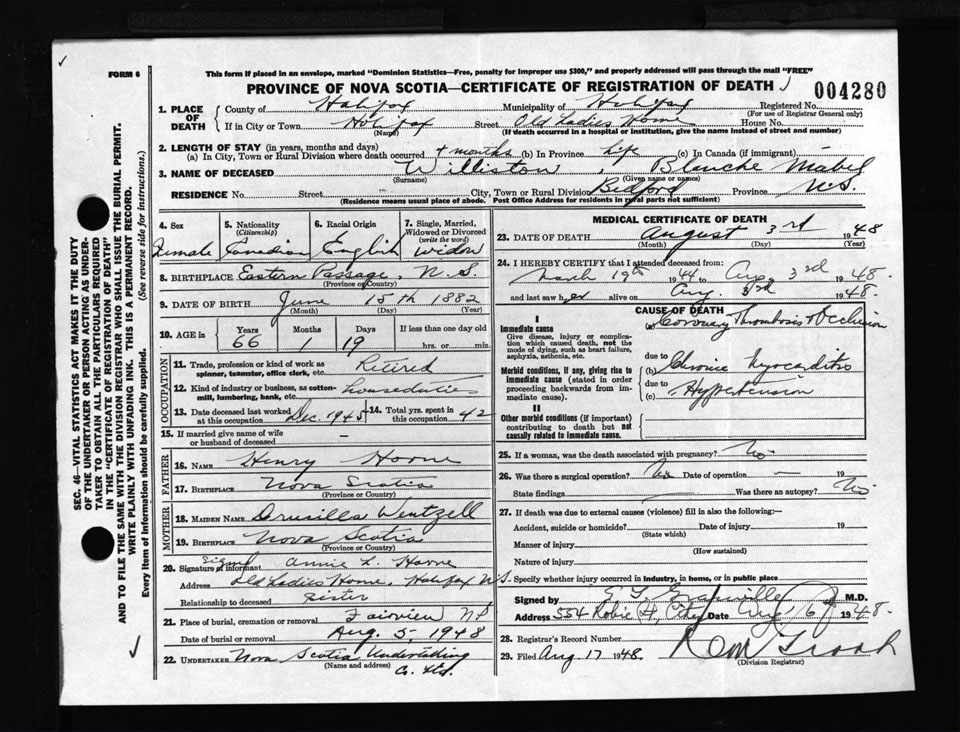 FORM 6
This form if placed in an envelope, marked "Dominion Statistics—Free, penalty for improper use $300," and properly addressed will pass through the mail "FREE"
PROVINCE OF NOVA SCOTIA—CERTIFICATE OF REGISTRATION OF DEATH
004280
1. PLACE OF DEATH
County of Halifax Municipality of Halifax Registered No.
(For use of Registrar General only)
If in City or Town Halifax Street Old Ladies Home House No.
(Name) (If death occurred in a hospital or institution, give the name instead of street and number)
2. LENGTH OF STAY (in years, months and days)
(a) In City, Town or Rural Division where death occurred 4 months (b) In Province Life (c) In Canada (if immigrant)
3. NAME OF DECEASED Williston, Blanche Mabel
(Surname) (Given name or names)
RESIDENCE No. Street City, Town or Rural Division Bedford Province N.S.
(Residence means usual place of abode. Post Office Address for residents in rural parts not sufficient)
4. Sex
5. Nationality (Citizenship)
6. Racial Origin
7. Single, Married, Widowed or Divorced (write the word)
Female Canadian English Widow
8. BIRTHPLACE Eastern Passage, N.S.
(Province or Country)
9. DATE OF BIRTH June 15th 1882
(Month) (Day) (Year)
10. AGE in Years Months Days If less than one day old
66 1 19 hrs. or min.
OCCUPATION
11. Trade, profession or kind of work as spinner, teamster, office clerk, etc. Retired
12. Kind of industry or business, as cotton-mill, lumbering, bank, etc.
13. Date deceased last worked at this occupation Dec. 1945
14. Total yrs. spent in this occupation 42
15. If married give name of wife or husband of deceased —
FATHER
16. NAME Henry Horne
17. BIRTHPLACE Nova Scotia
(Province or Country)
MOTHER
18. MAIDEN NAME Drusilla Wentzell
19. BIRTHPLACE Nova Scotia
(Province or Country)
20. Signature of informant Signed Annie L. Horne
Address Old Ladies Home, Halifax N.S.
Relationship to deceased Sister
21. Place of burial, cremation or removal Fairview
Date of burial or removal Aug. 5, 1948
22. UNDERTAKER Nova Scotia Undertaking Co. Ltd.
(Name and address)
MEDICAL CERTIFICATE OF DEATH
23. DATE OF DEATH August 3rd 1948
(Month) (Day) (Year)
24. I HEREBY CERTIFY that I attended deceased from:
March 19th 1944 to Aug. 3rd 1948.
and last saw her alive on Aug. 3rd 1948.
CAUSE OF DEATH
I
Immediate cause
Give disease, injury or complication which caused death, not the mode of dying, such as heart failure, asphyxia, asthenia, etc.
(a) Coronary Thrombosis & Occlusion
Morbid conditions, if any, giving rise to immediate cause (stated in order proceeding backwards from immediate cause).
due to
(b) Chronic Myocarditis
due to
(c) Hypertension
II
Other morbid conditions (if important) contributing to death but not causally related to immediate cause.
25. If a woman, was the death associated with pregnancy? No
26. Was there a surgical operation? No Date of operation — 19
State findings — Was there an autopsy? No
27. If death was due to external causes (violence) fill in also the following:
Accident, suicide or homicide? Date of injury 19
(State which)
Manner of injury
(How sustained)
Nature of injury
Specify whether injury occurred in industry, in home, or in public place
Signed by M.D.
Address 554 Robie St, City Date Aug. 6 1948.
28. Registrar's Record Number
29. Filed Aug. 17 1948.
(Division Registrar)
SEC. 46—VITAL STATISTICS ACT MAKES IT THE DUTY
OF THE UNDERTAKER OR PERSON ACTING AS UNDERTAKER TO OBTAIN ALL THE PARTICULARS REQUIRED
IN THE "CERTIFICATE OF REGISTRATION OF DEATH"
AND TO FILE THE SAME WITH THE DIVISION REGISTRAR WHO SHALL ISSUE THE BURIAL PERMIT.
WRITE PLAINLY WITH UNFADING INK. THIS IS A PERMANENT RECORD.
Every item of information should be carefully supplied. (See reverse side for instructions.)